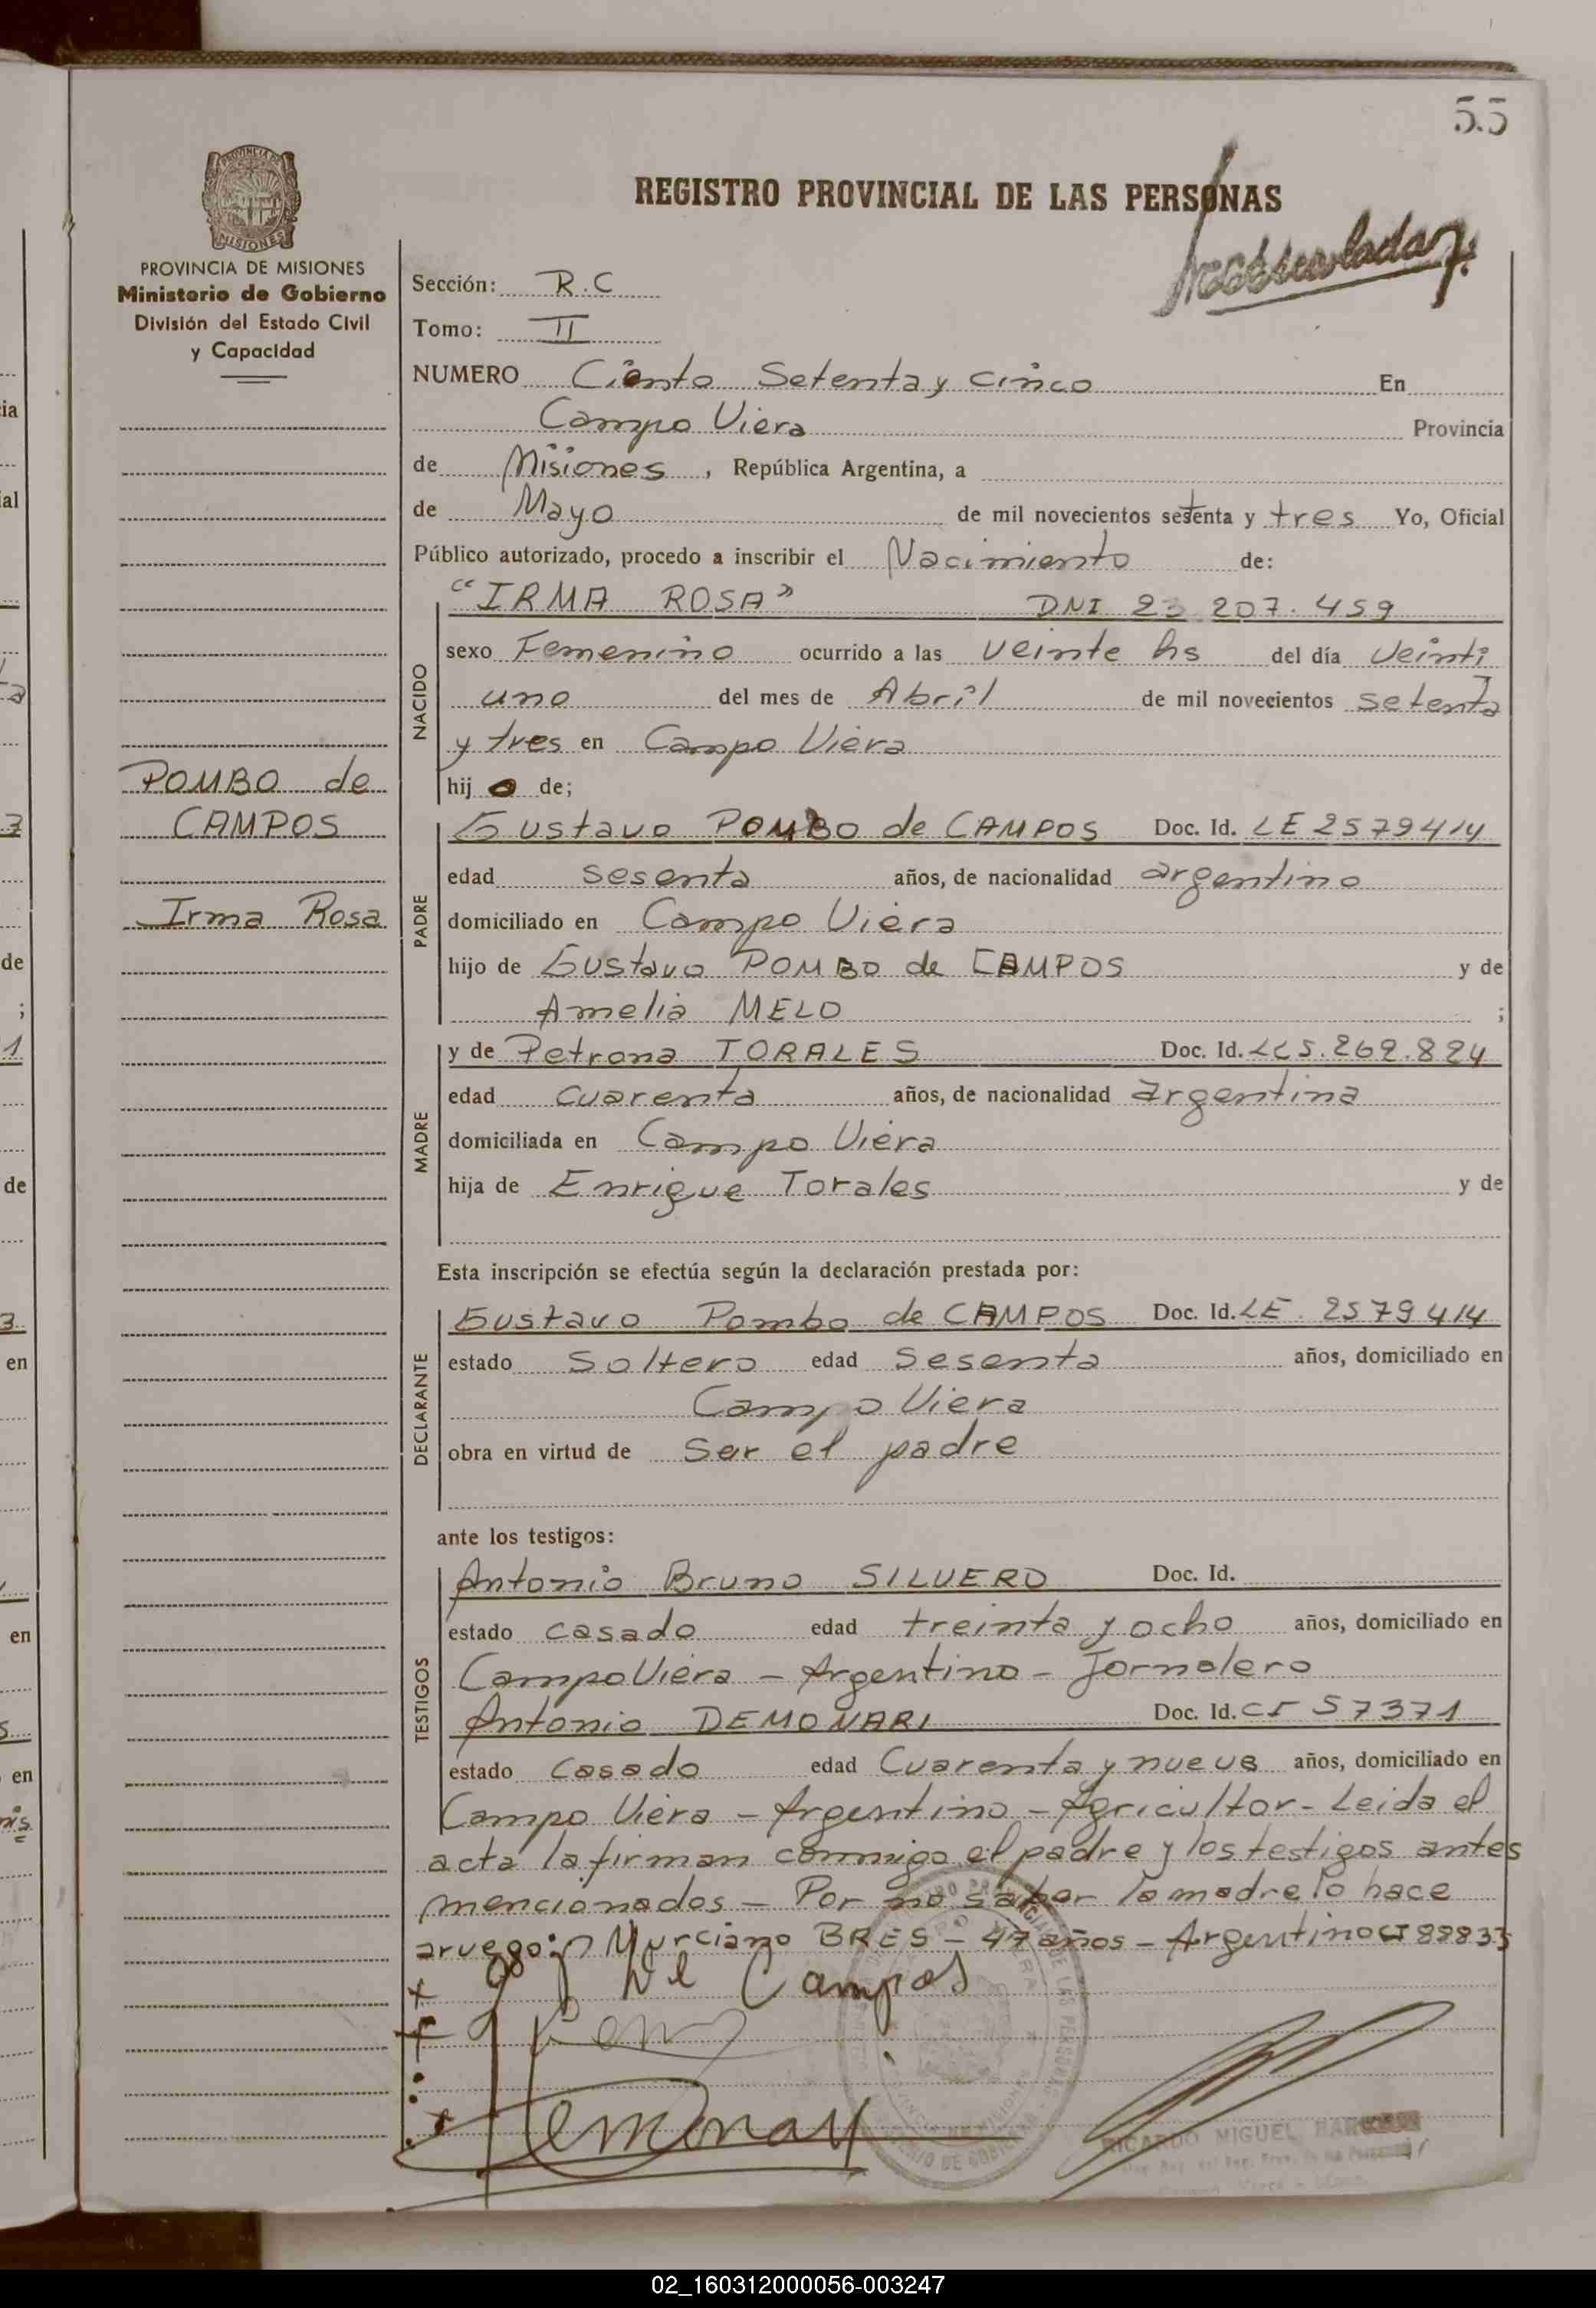 55
REGISTRO PROVINCIAL DE LAS PERSONAS
PROVINCIA DE MISIONES
Ministerio de Gobierno
División del Estado Civil
y Capacidad
Sección: R.C
Tomo: II
NUMERO Ciento Setenta y cinco En
Campo Viera Provincia
de Misiones, República Argentina, a
de Mayo de mil novecientos setenta y tres Yo, Oficial
Público autorizado, procedo a inscribir el Nacimiento de:
"IRMA ROSA" DNI 23 207.459
NACIDO
sexo Femenino ocurrido a las veinte hs del día veinti
uno del mes de Abril de mil novecientos setenta
y tres en Campo Viera
hij a de;
POMBO de
CAMPOS
Irma Rosa
PADRE
Gustavo POMBO de CAMPOS Doc. Id. LE 2579414
edad sesenta años, de nacionalidad argentino
domiciliado en Campo Viera
hijo de Gustavo POMBO de CAMPOS y de
Amelia MELO ;
MADRE
y de Petrona TORALES Doc. Id. LC 5.269.824
edad cuarenta años, de nacionalidad argentina
domiciliada en Campo Viera
hija de Enrique Torales y de
Esta inscripción se efectúa según la declaración prestada por:
DECLARANTE
Gustavo Pombo de CAMPOS Doc. Id. LE. 2579414
estado Soltero edad Sesenta años, domiciliado en
Campo Viera
obra en virtud de Ser el padre
ante los testigos:
TESTIGOS
Antonio Bruno SILVERO Doc. Id.
estado casado edad treinta y ocho años, domiciliado en
Campo Viera - Argentino - Jornalero
Antonio DEMONARI Doc. Id. CI 57371
estado Casado edad Cuarenta y nueve años, domiciliado en
Campo Viera - Argentino - Agricultor - Leida el
acta la firman conmigo el padre y los testigos antes
mencionados - Por no saber la madre lo hace
aruego: Murciano BRES - 47 años - Argentino CI 88833
de Campos
RICARDO MIGUEL
02_160312000056-003247